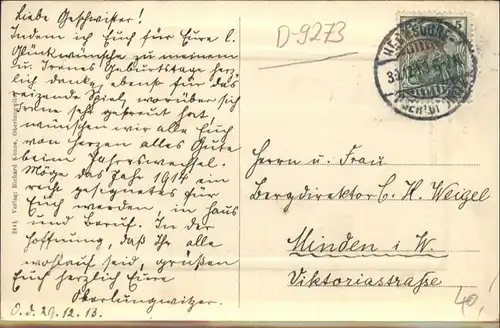 Liebe Geschwister!
Indem ich Euch für Eure l.
Glückwünsche zu meinem
u. Irenes Geburtstage herz-
lich danke, ebenso für das
reizende Spiel, worüber sich
Irene sehr gefreut hat,
wünschen wir alle Euch
von Herzen alles Gute
beim Jahreswechsel.
Möge das Jahr 1914 ein
recht gesegnetes für
Euch werden, in Haus
und Beruf. In der
Hoffnung, daß Ihr alle
wohlauf seid, grüßen
Euch herzlich Eure
Oberlungwitzer.
O.d. 29.12.13.
D-9273
5
Herrn u. Frau
Bergdirektor C. H. Weigel
Minden i. W.
Viktoriastraße
40,-
Verlag: Richard